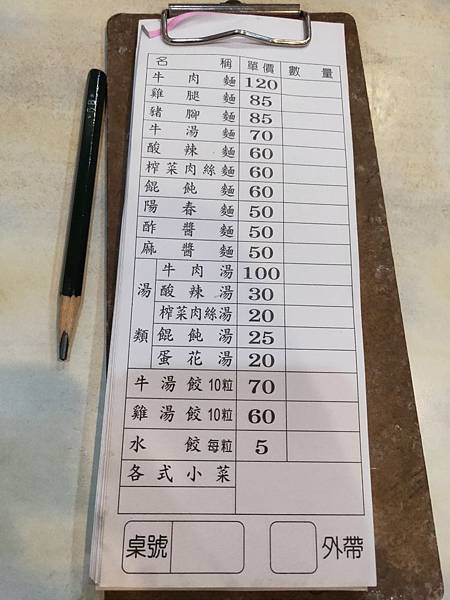 名稱 單價 數量
牛肉麵 120
雞腿麵 85
豬腳麵 85
牛湯麵 70
酸辣麵 60
榨菜肉絲麵 60
餛飩麵 60
陽春麵 50
酢醬麵 50
麻醬麵 50
湯類
牛肉湯 100
酸辣湯 30
榨菜肉絲湯 20
餛飩湯 25
蛋花湯 20
牛湯餃10粒 70
雞湯餃10粒 60
水餃每粒 5
各式小菜
桌號 外帶